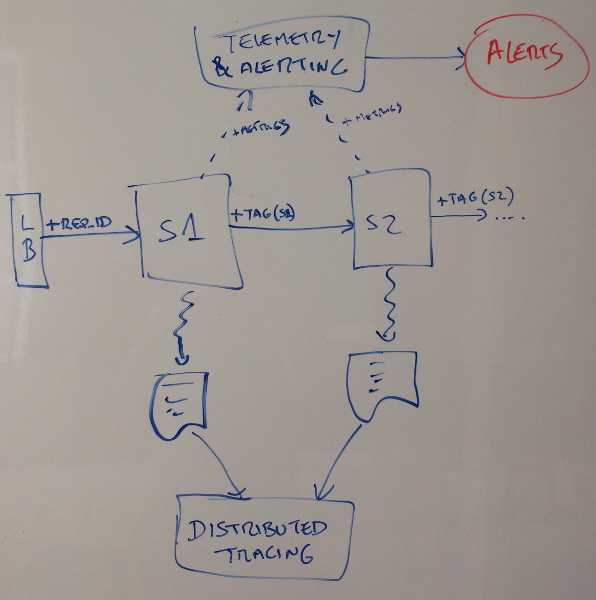 TELEMETRY
& ALERTING
ALERTS
+METRICS
+METRICS
LB
+REQ_ID
S1
+TAG(S1)
S2
+TAG(S2)
....
DISTRIBUTED
TRACING